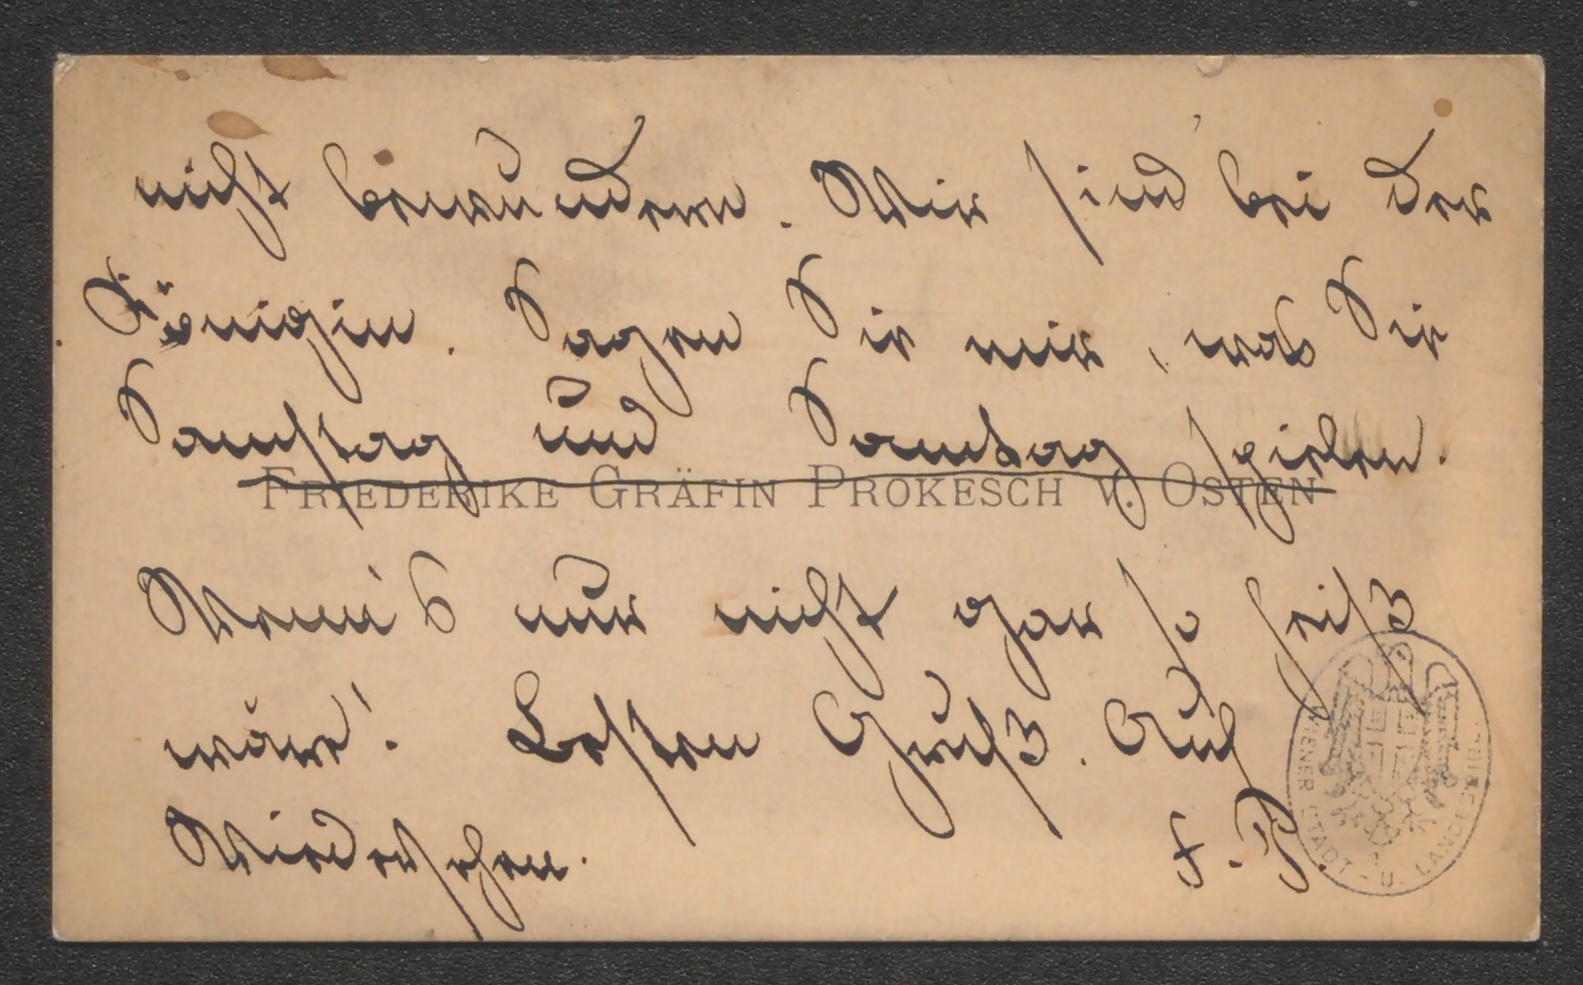 nicht bewundern. Wir sind bei der
Königin. Sagen Sie mir, was Sie
Samstag und Sonntag spielen.
FRIEDERIKE GRÄFIN PROKESCH V. OSTEN
Wenn's nur nicht gar so heiß
wäre! Besten Gruß. Auf
Wiedersehen.
F. P.
WIENER STADT- U. LANDESBIBL.